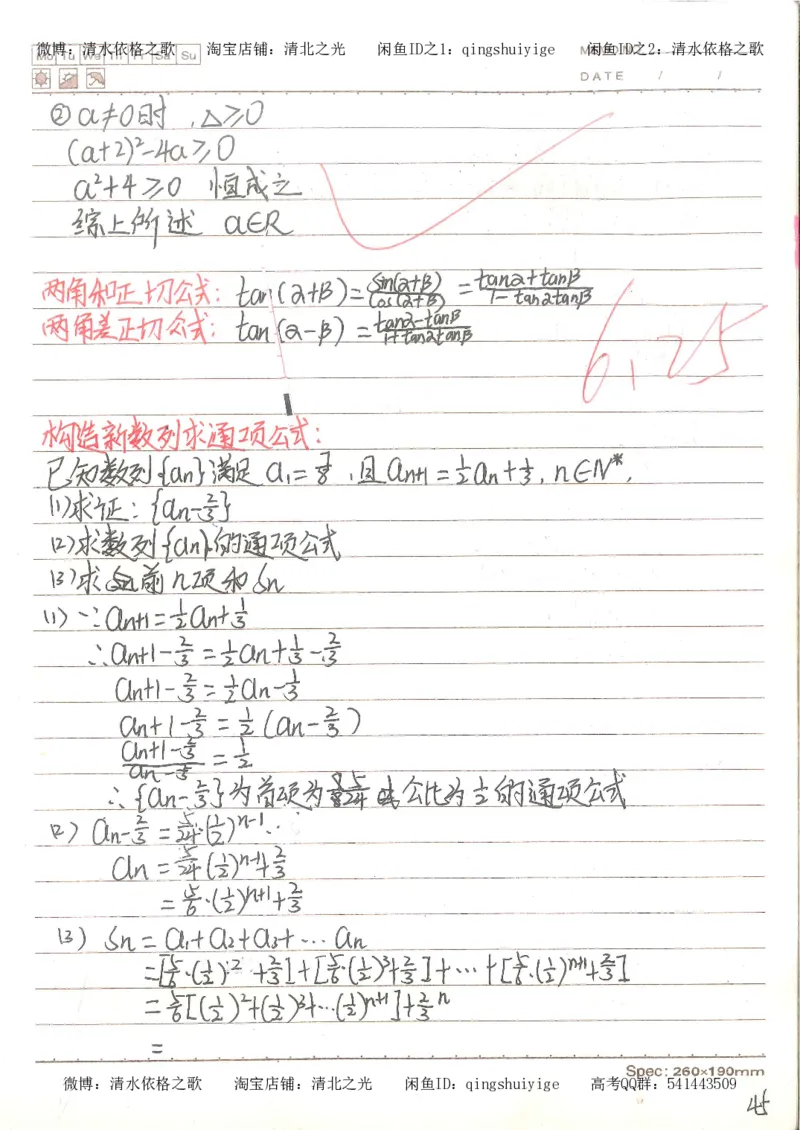 微博：清水依格之歌 淘宝店铺：清北之光 闲鱼ID之1：qingshuiyige 闲鱼ID之2：清水依格之歌
Mo Tu We Th Fr Sa Su
DATE / /
②a≠0时，△≥0
(a+2)²-4a≥0
a²+4≥0 恒成立
综上所述 a∈R
两角和正切公式：tan(α+β)=sin(α+β)/cos(α+β)=tanα+tanβ/1-tanαtanβ
两角差正切公式：tan(α-β)=tanα-tanβ/1+tanαtanβ
6.25
构造新数列求通项公式：
已知数列{an}满足a₁=7/8，且an+1=1/2an+1/3，n∈N*，
(1)求证：{an-2/3}
(2)求数列{an}的通项公式
(3)求前n项和Sn
(1)∵an+1=1/2an+1/3
∴an+1-2/3=1/2an+1/3-2/3
an+1-2/3=1/2an-1/3
an+1-2/3=1/2(an-2/3)
an+1-2/3/an-2/3=1/2
∴{an-2/3}为首项为5/24 公比为1/2的通项公式
(2)an-2/3=5/24·(1/2)ⁿ⁻¹
an=5/24(1/2)ⁿ⁻¹+2/3
=5/6·(1/2)ⁿ⁺¹+2/3
(3)Sn=a₁+a₂+a₃+…an
=[5/6·(1/2)²+2/3]+[5/6·(1/2)³+2/3]+…+[5/6·(1/2)ⁿ⁺¹+2/3]
=5/6[(1/2)²+(1/2)³+…(1/2)ⁿ⁺¹]+2/3n
=
Spec: 260×190mm
微博：清水依格之歌 淘宝店铺：清北之光 闲鱼ID：qingshuiyige 高考QQ群：541443509
45